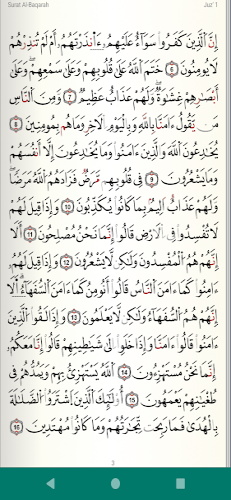 Surat Al-Baqarah Juz' 1
إِنَّ ٱلَّذِينَ كَفَرُوا۟ سَوَآءٌ عَلَيْهِمْ ءَأَنذَرْتَهُمُۥٓ أَمْ لَمْ تُنذِرْهُمْ
لَا يُومِنُونَ ٦ خَتَمَ ٱللَّهُ عَلَىٰ قُلُوبِهِمْ وَعَلَىٰ سَمْعِهِمْ وَعَلَىٰٓ
أَبْصَٰرِهِمْ غِشَٰوَةٌ وَلَهُمْ عَذَابٌ عَظِيمٌ ٧ وَمِنَ ٱلنَّاسِ
مَن يَقُولُ ءَامَنَّا بِٱللَّهِ وَبِٱلْيَوْمِ ٱلْأَخِرِ وَمَا هُم بِمُومِنِينَ ٨
يُخَٰدِعُونَ ٱللَّهَ وَٱلَّذِينَ ءَامَنُوا۟ وَمَا يُخَٰدِعُونَ إِلَّآ أَنفُسَهُمْ
وَمَا يَشْعُرُونَ ٩ فِى قُلُوبِهِم مَّرَضٌ فَزَادَهُمُ ٱللَّهُ مَرَضًا
وَلَهُمْ عَذَابٌ أَلِيمٌۢ بِمَا كَانُوا۟ يُكَذِّبُونَ ١٠ وَإِذَا قِيلَ لَهُمْ
لَا تُفْسِدُوا۟ فِى ٱلْأَرْضِ قَالُوٓا۟ إِنَّمَا نَحْنُ مُصْلِحُونَ ١١ أَلَآ
إِنَّهُمْ هُمُ ٱلْمُفْسِدُونَ وَلَٰكِن لَّا يَشْعُرُونَ ١٢ وَإِذَا قِيلَ لَهُمُۥٓ
ءَامِنُوا۟ كَمَآ ءَامَنَ ٱلنَّاسُ قَالُوٓا۟ أَنُومِنُ كَمَآ ءَامَنَ ٱلسُّفَهَآءُ أَلَآ
إِنَّهُمْ هُمُ ٱلسُّفَهَآءُ وَلَٰكِن لَّا يَعْلَمُونَ ١٣ وَإِذَا لَقُوا۟ ٱلَّذِينَ
ءَامَنُوا۟ قَالُوٓا۟ ءَامَنَّا وَإِذَا خَلَوِا۟ اِلَىٰ شَيَٰطِينِهِمْ قَالُوٓا۟ إِنَّا مَعَكُمُۥٓ
إِنَّمَا نَحْنُ مُسْتَهْزِءُونَ ١٤ ٱللَّهُ يَسْتَهْزِئُ بِهِمْ وَيَمُدُّهُمْ فِى
طُغْيَٰنِهِمْ يَعْمَهُونَ ١٥ أُو۟لَٰٓئِكَ ٱلَّذِينَ ٱشْتَرَوُا۟ ٱلضَّلَٰلَةَ
بِٱلْهُدَىٰ فَمَا رَبِحَت تِّجَٰرَتُهُمْ وَمَا كَانُوا۟ مُهْتَدِينَ ١٦
3